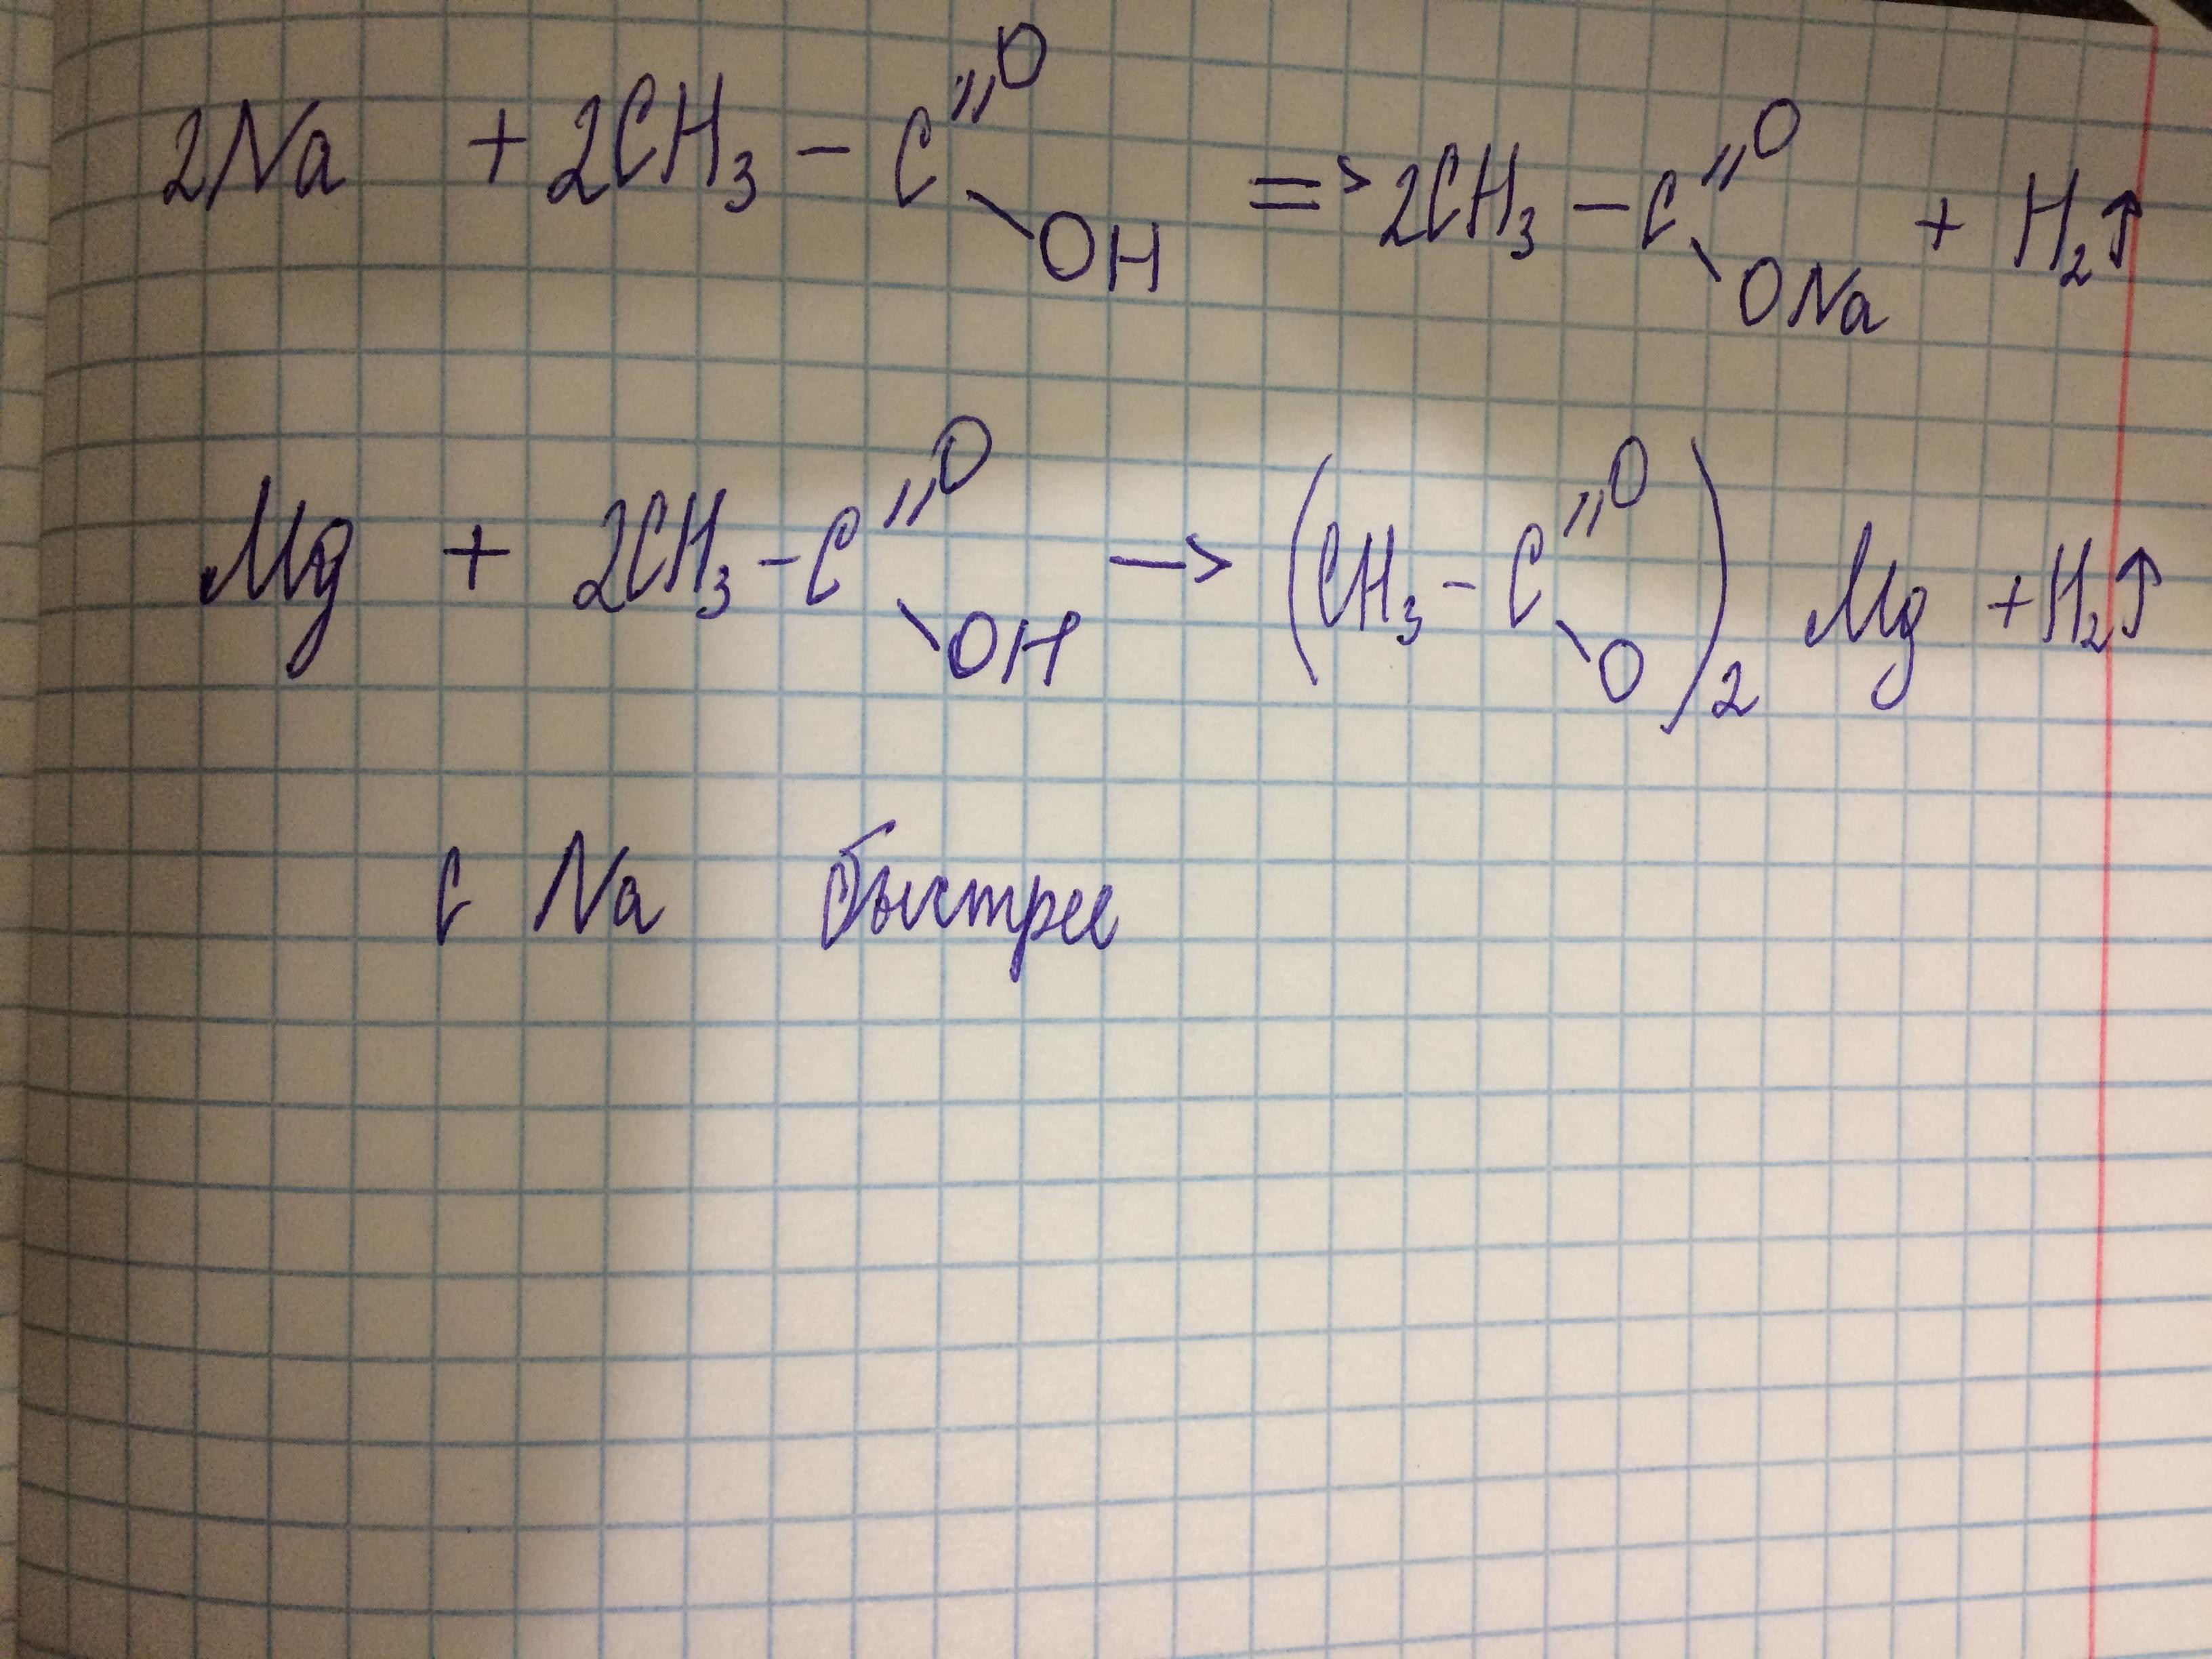 2Na + 2CH₃ – C // O \ OH => 2CH₃ – C // O \ ONa + H₂↑
Mg + 2CH₃ – C // O \ OH –> (CH₃ – C // O \ O)₂ Mg + H₂↑
с Na быстрее